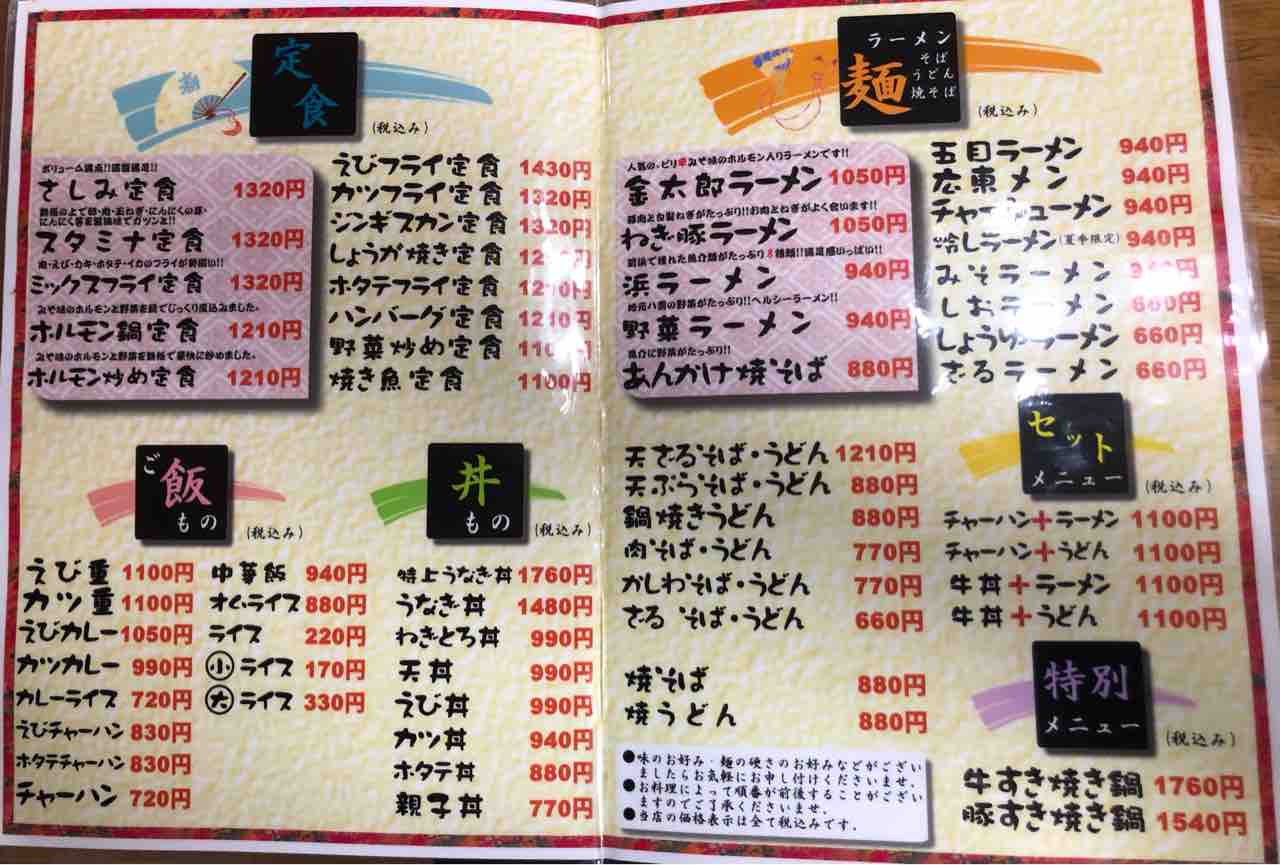 定食
(税込み)
さしみ定食 1320円
スタミナ定食 1320円
肉・えび・カキ・ホタテ・イカのフライが勢揃い!!
ミックスフライ定食 1320円
みそ味のホルモンと野菜を鍋でじっくり煮込みました。
ホルモン鍋定食 1210円
みそ味のホルモンと野菜を鉄板で豪快に炒めました。
ホルモン炒め定食 1210円
えびフライ定食 1430円
カツフライ定食 1320円
ジンギスカン定食 1320円
しょうが焼き定食
ホタテフライ定食 1210円
ハンバーグ定食 1210円
野菜炒め定食
焼き魚定食 1100円
ご飯もの
(税込み)
えび重 1100円
カツ重 1100円
えびカレー 1050円
カツカレー 990円
カレーライス 720円
えびチャーハン 830円
ホタテチャーハン 830円
チャーハン 720円
中華飯 940円
オムライス 880円
ライス 220円
小ライス 170円
大ライス 330円
丼もの
(税込み)
特上うなぎ丼 1760円
うなぎ丼 1480円
ねぎとろ丼 990円
天丼 990円
えび丼 990円
カツ丼 940円
ホタテ丼 880円
親子丼 770円
ラーメン
麺
そば
うどん
焼そば
(税込み)
人気の、ピリ辛みそ味のホルモン入りラーメンです!!
金太郎ラーメン 1050円
豚肉と白髪ねぎがたっぷり!!お肉とねぎがよく合います!!
ねぎ豚ラーメン 1050円
浜ラーメン 940円
地元八雲の野菜がたっぷり!!ヘルシーラーメン!!
野菜ラーメン 940円
魚介に野菜がたっぷり!!
あんかけ焼そば 880円
五目ラーメン 940円
広東メン 940円
チャーシューメン 940円
冷しラーメン(夏季限定) 940円
みそラーメン
しおラーメン 660円
しょうゆラーメン 660円
ざるラーメン 660円
天ざるそば・うどん 1210円
天ぷらそば・うどん 880円
鍋焼きうどん 880円
肉そば・うどん 770円
かしわそば・うどん 770円
ざる そば・うどん 660円
焼そば 880円
焼うどん 880円
●味のお好み・麺の硬さのお好みなどがござい
ましたらお気軽にお申し付けくださいませ。
●お料理によって順番が前後することがござい
ますのでご了承くださいませ。
●当店の価格表示は全て税込みです。
セット
メニュー
(税込み)
チャーハン+ラーメン 1100円
チャーハン+うどん 1100円
牛丼+ラーメン 1100円
牛丼+うどん 1100円
特別
メニュー
(税込み)
牛すき焼き鍋 1760円
豚すき焼き鍋 1540円